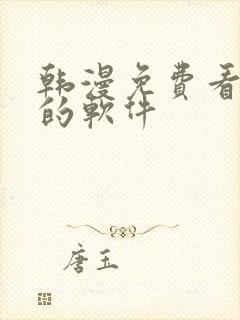 韩漫免费看
的软件
唐玉